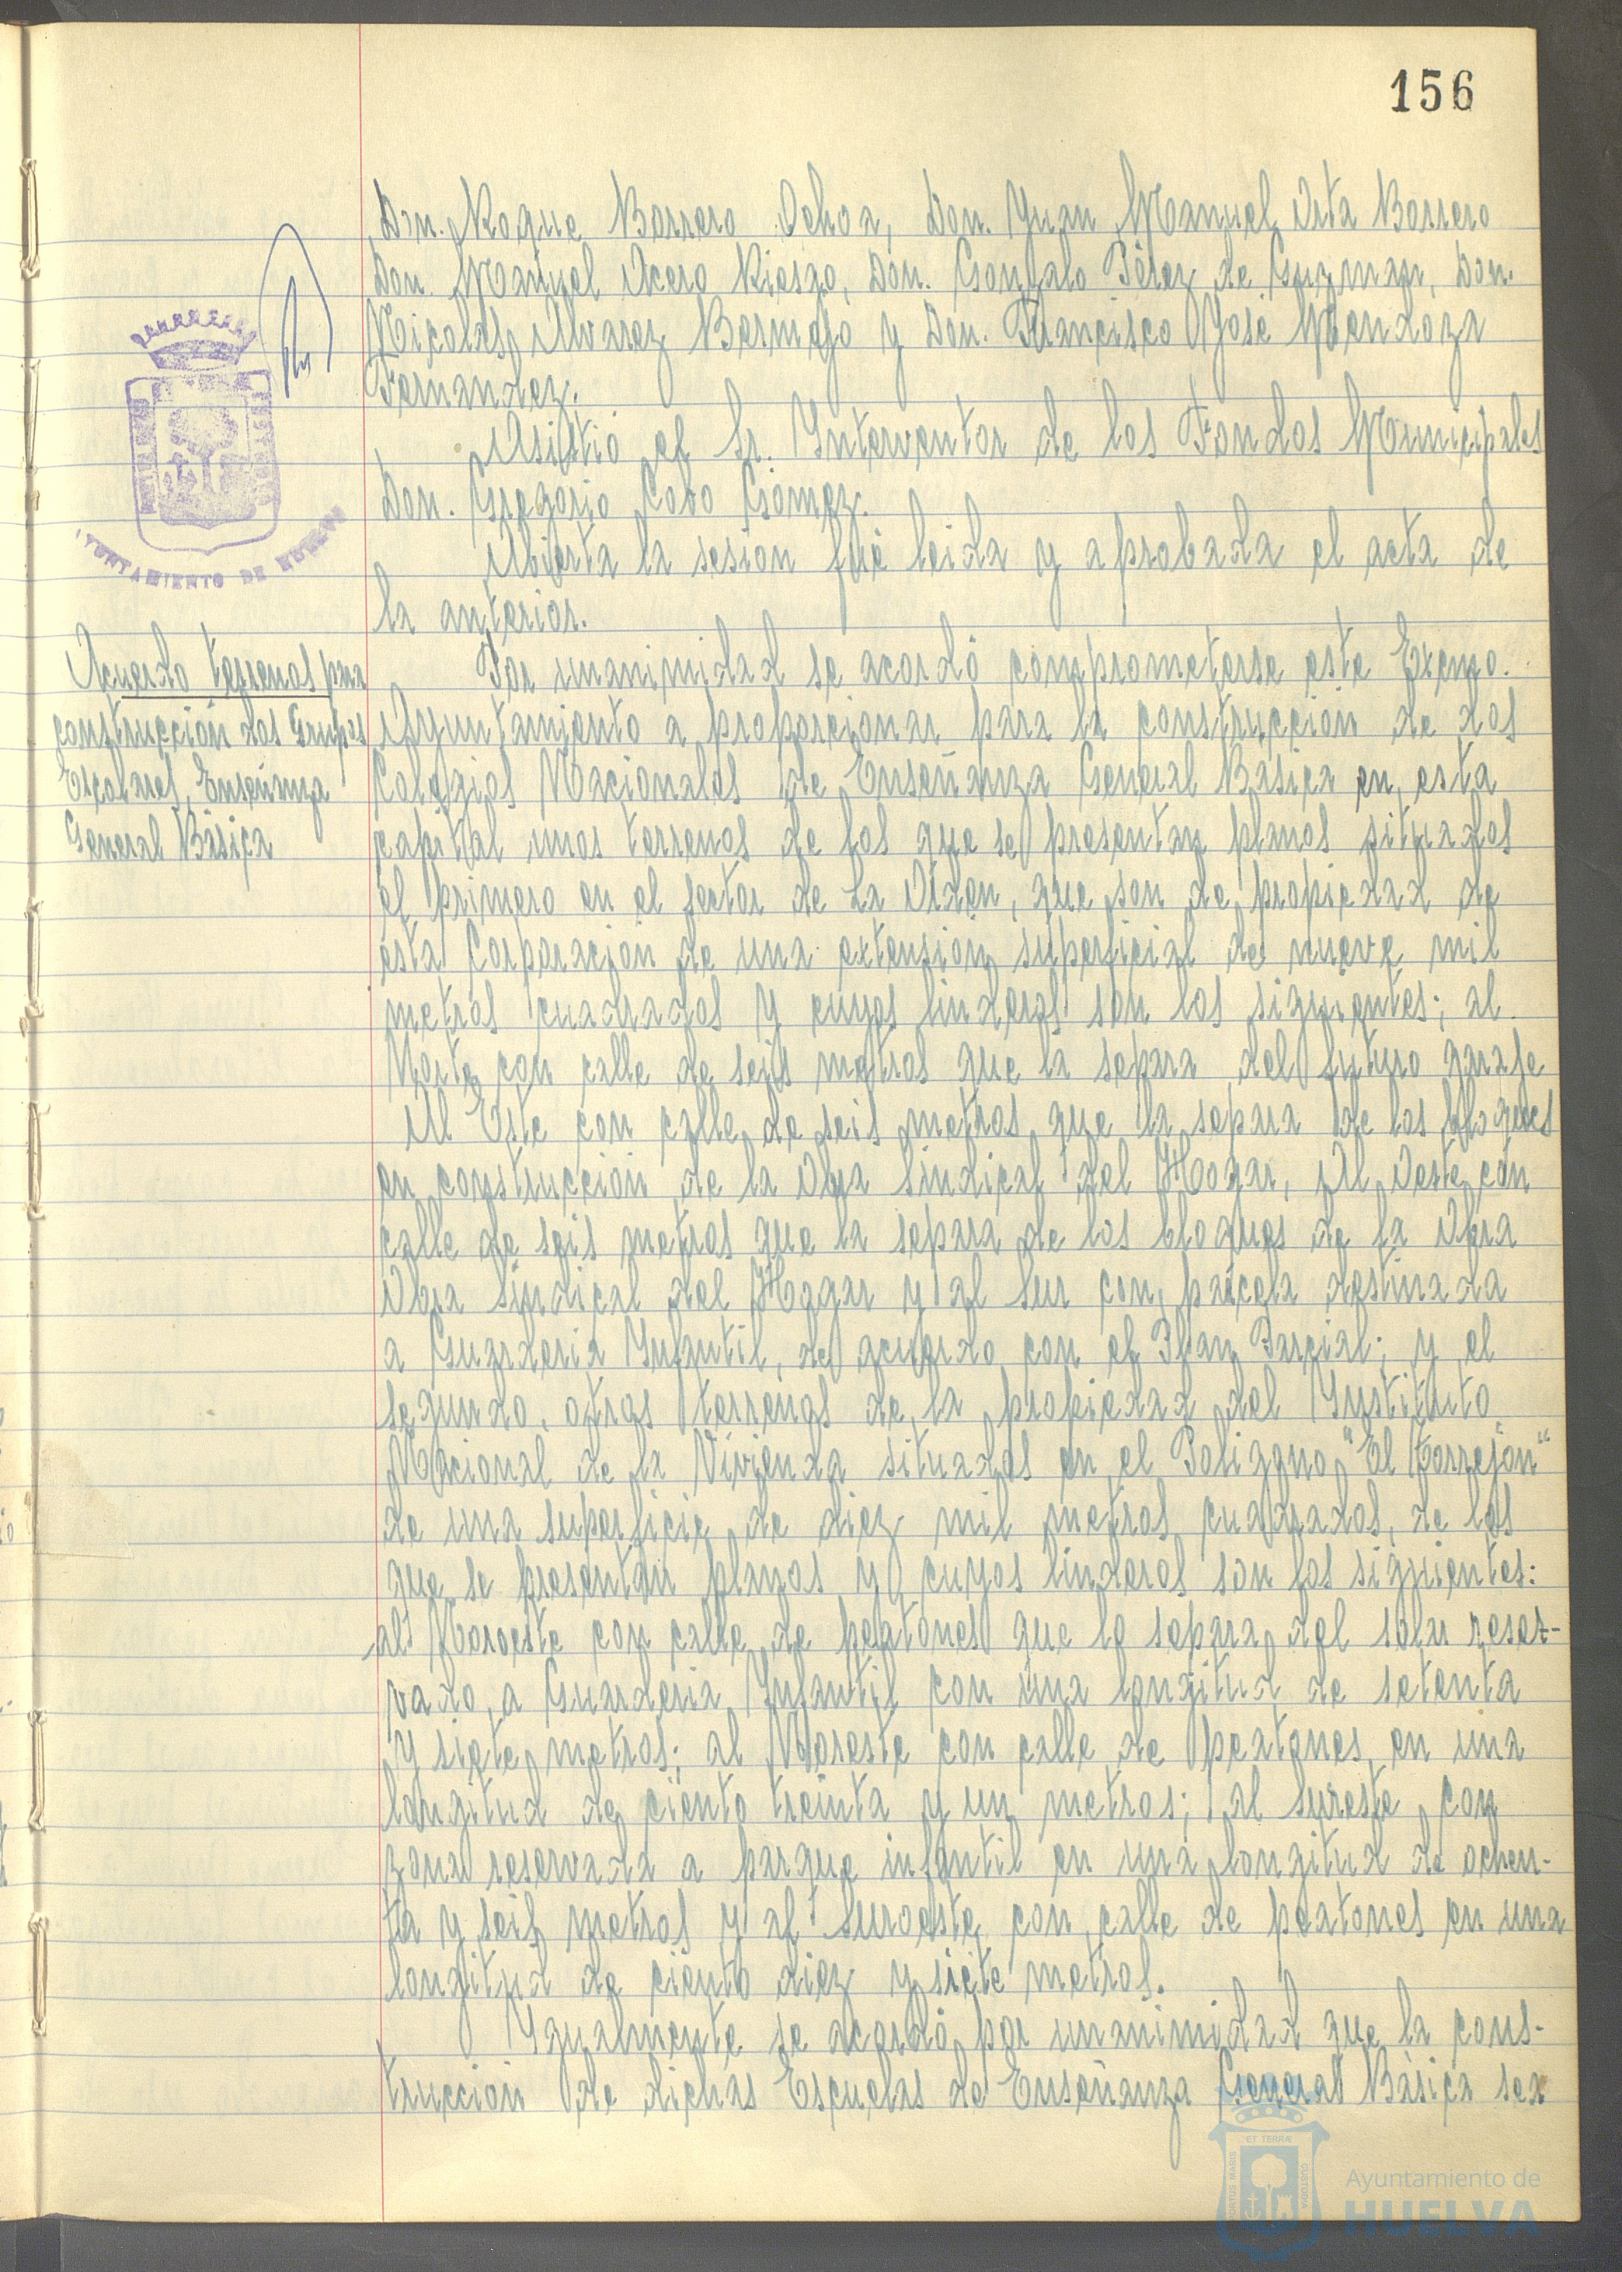 156
Don. Roque Borrero Ochoa, Don. Juan Manuel Orta Borrero
Don. Manuel Acero Riesgo, Don. Gonzalo Pérez de Guzman, Don.
Nicolas Alvarez Bermejo y Don. Francisco José Mendoza
Fernandez.
Asistió el Sr. Interventor de los Fondos Municipales
Don. Gregorio Cobo Gómez.
Abierta la sesion fué leida y aprobada el acta de
la anterior.
AYUNTAMIENTO DE HUELVA
Acuerdo terrenos para
construcción dos Grupos
Escolares, Enseñanza
General Básica
Por unanimidad se acordó comprometerse este Excmo.
Ayuntamiento a proporcionar para la construcción de dos
Colegios Nacionales de Enseñanza General Básica en esta
capital unos terrenos de los que se presentan planos situados
el primero en el sector de La Orden, que son de propiedad de
esta Corporación de una extension superficial de nueve mil
metros cuadrados y cuyos linderos son los siguientes; al
Norte con calle de seis metros que la separa del futuro garaje
Al Este con calle de seis metros que la separa de los bloques
en construcción de la Obra Sindical del Hogar, Al Oeste con
calle de seis metros que la separa de los bloques de la Obra
Obra Sindical del Hogar y al Sur con parcela destinada
a Guarderia Infantil, de acuerdo con el Plan Parcial; y el
segundo, otros terrenos de la propiedad del Instituto
Nacional de la Vivienda situados en el Poligono "El Torrejón"
de una superficie de diez mil metros cuadrados, de los
que se presentan planos y cuyos linderos son los siguientes:
al Noroeste con calle de peatones que lo separa del solar reser-
vado a Guarderia Infantil con una longitud de setenta
y siete metros; al Noreste con calle de peatones en una
longitud de ciento treinta y un metros; al sureste con
zona reservada a parque infantil en una longitud de ochen-
ta y seis metros y al Suroeste con calle de peatones en una
longitud de ciento diez y siete metros.
Igualmente se acordó por unanimidad que la cons-
trucción de dichas Escuelas de Enseñanza General Básica sea
PORTUS MARIS
ET TERRÆ
CUSTODIA
Ayuntamiento de
HUELVA